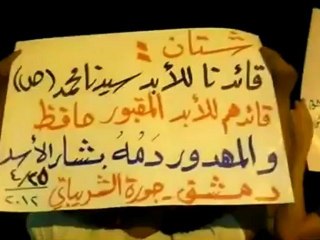 شتان :
قائدنا للأبد سيدنا محمد (ص)
قائدهم للأبد المقبور حافظ
والمهدور دمُهُ بشار الأسد
دمشق - جورة الشريباتي ٤/٢٥ ٢٠١٢